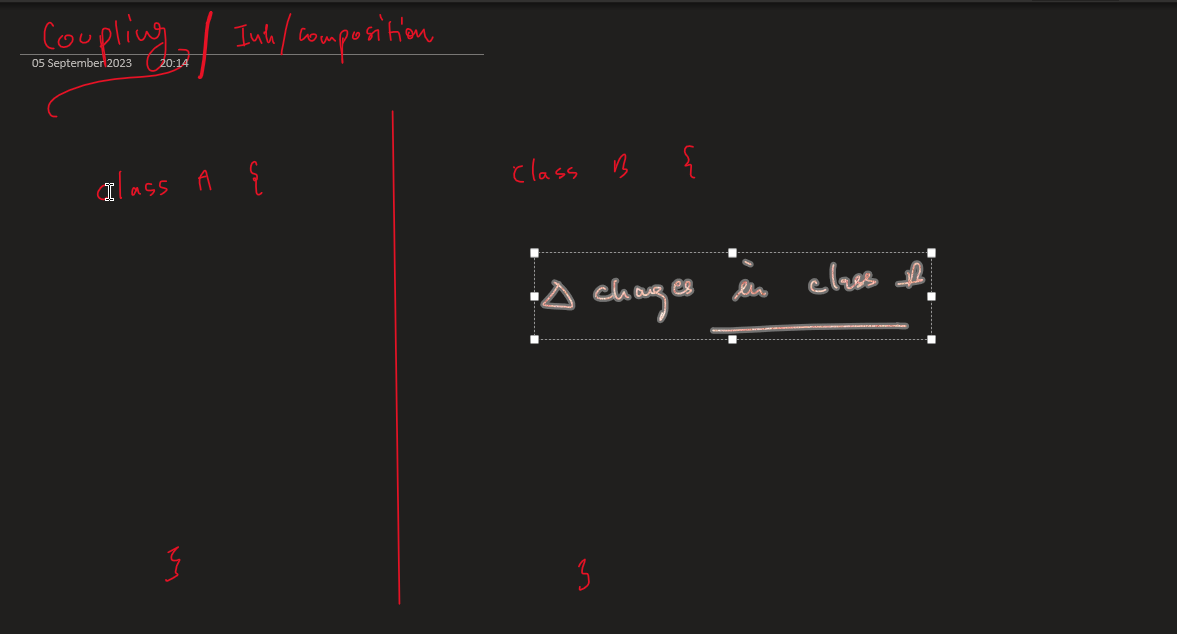 Coupling / Inh/composition
05 September 2023 20:14
class A {
class B {
Δ changes in class
}
}